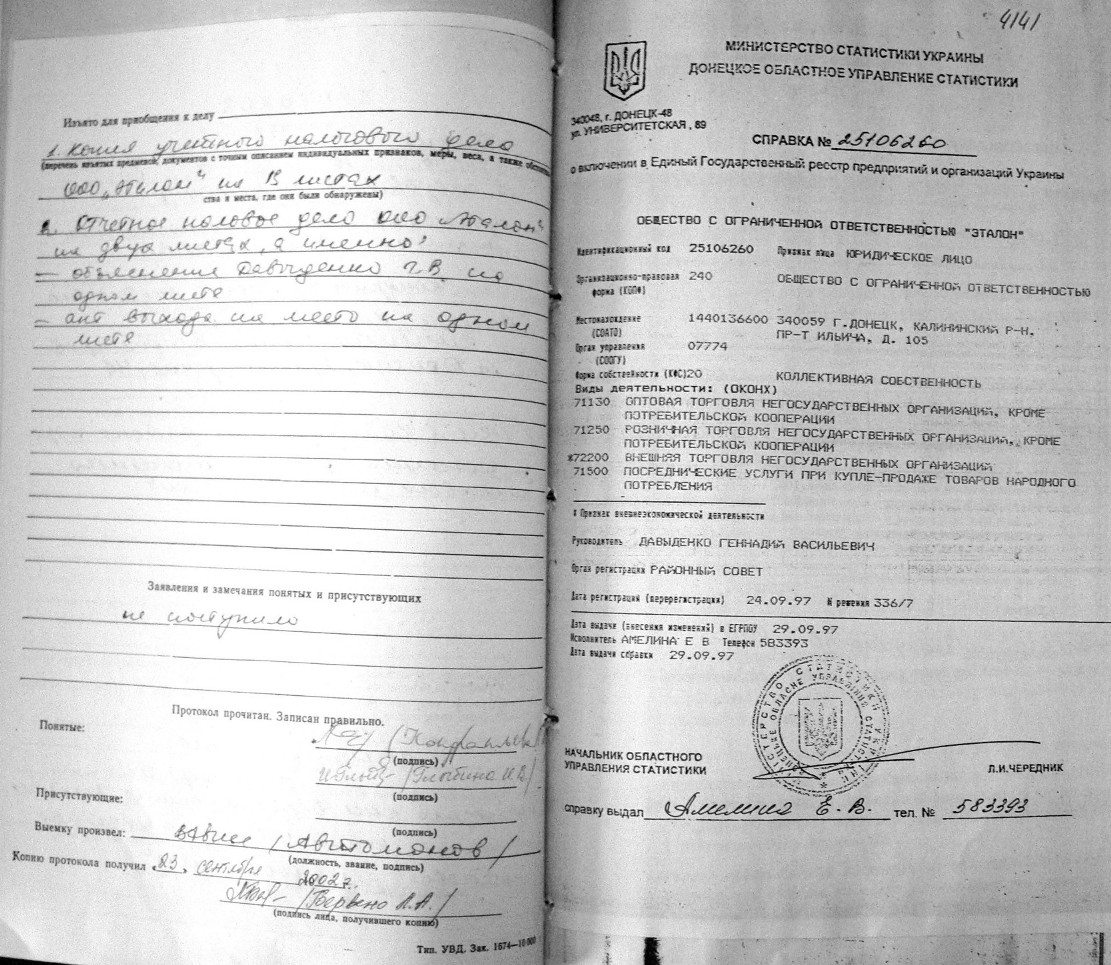 Изъято для приобщения к делу
1. Копия учетного налогового дела
(перечень изъятых предметов, документов с точным описанием индивидуальных признаков, меры, веса, а также обстоятель
ООО „Эталон" на 13 листах
ства и места, где они были обнаружены)
2. Отчетное наловое дело ООО „Эталон"
на двух листах, а именно:
— объяснение Давыденко Г.В. на
одном листе
— акт выхода на место на одном
листе
Заявления и замечания понятых и присутствующих
не поступило
Протокол прочитан. Записан правильно.
Понятые:
(подпись)
(подпись)
Присутствующие:
(подпись)
Выемку произвел: /Автомонов/
(должность, звание, подпись)
Копию протокола получил 23, сентября
2002 г.
Л.А./
(подпись лица, получившего копию)
Тип. УВД. Зак. 1674—10 000
4141
МИНИСТЕРСТВО СТАТИСТИКИ УКРАИНЫ
ДОНЕЦКОЕ ОБЛАСТНОЕ УПРАВЛЕНИЕ СТАТИСТИКИ
340048, г. ДОНЕЦК-48
ул. УНИВЕРСИТЕТСКАЯ , 89
СПРАВКА № 25106260
о включении в Единый Государственный реестр предприятий и организаций Украины
ОБЩЕСТВО С ОГРАНИЧЕННОЙ ОТВЕТСТВЕННОСТЬЮ "ЭТАЛОН"
Идентификационный код 25106260 Признак лица ЮРИДИЧЕСКОЕ ЛИЦО
Организационно-правовая 240 ОБЩЕСТВО С ОГРАНИЧЕННОЙ ОТВЕТСТВЕННОСТЬЮ
форма (КОПФ)
Местонахождение 1440136600 340059 Г.ДОНЕЦК, КАЛИНИНСКИЙ Р-Н,
(СОАТО) ПР-Т ИЛЬИЧА, Д. 105
Орган управления 07774
(СООГУ)
Форма собственности (КФС) 20 КОЛЛЕКТИВНАЯ СОБСТВЕННОСТЬ
Виды деятельности: (ОКОНХ)
71130 ОПТОВАЯ ТОРГОВЛЯ НЕГОСУДАРСТВЕННЫХ ОРГАНИЗАЦИЙ, КРОМЕ
ПОТРЕБИТЕЛЬСКОЙ КООПЕРАЦИИ
71250 РОЗНИЧНАЯ ТОРГОВЛЯ НЕГОСУДАРСТВЕННЫХ ОРГАНИЗАЦИЙ, КРОМЕ
ПОТРЕБИТЕЛЬСКОЙ КООПЕРАЦИИ
*72200 ВНЕШНЯЯ ТОРГОВЛЯ НЕГОСУДАРСТВЕННЫХ ОРГАНИЗАЦИЙ
71500 ПОСРЕДНИЧЕСКИЕ УСЛУГИ ПРИ КУПЛЕ-ПРОДАЖЕ ТОВАРОВ НАРОДНОГО
ПОТРЕБЛЕНИЯ
* Признак внешнеэкономической деятельности
Руководитель ДАВЫДЕНКО ГЕННАДИЙ ВАСИЛЬЕВИЧ
Орган регистрации РАЙОННЫЙ СОВЕТ
Дата регистрации (перерегистрации) 24.09.97 N решения 336/7
Дата выдачи (внесения изменений) в ЕГРПОУ 29.09.97
Исполнитель АМЕЛИНА Е В Телефон 583393
Дата выдачи справки 29.09.97
НАЧАЛЬНИК ОБЛАСТНОГО
УПРАВЛЕНИЯ СТАТИСТИКИ Л.И.ЧЕРЕДНИК
справку выдал Амелина Е. В. тел. № 583393